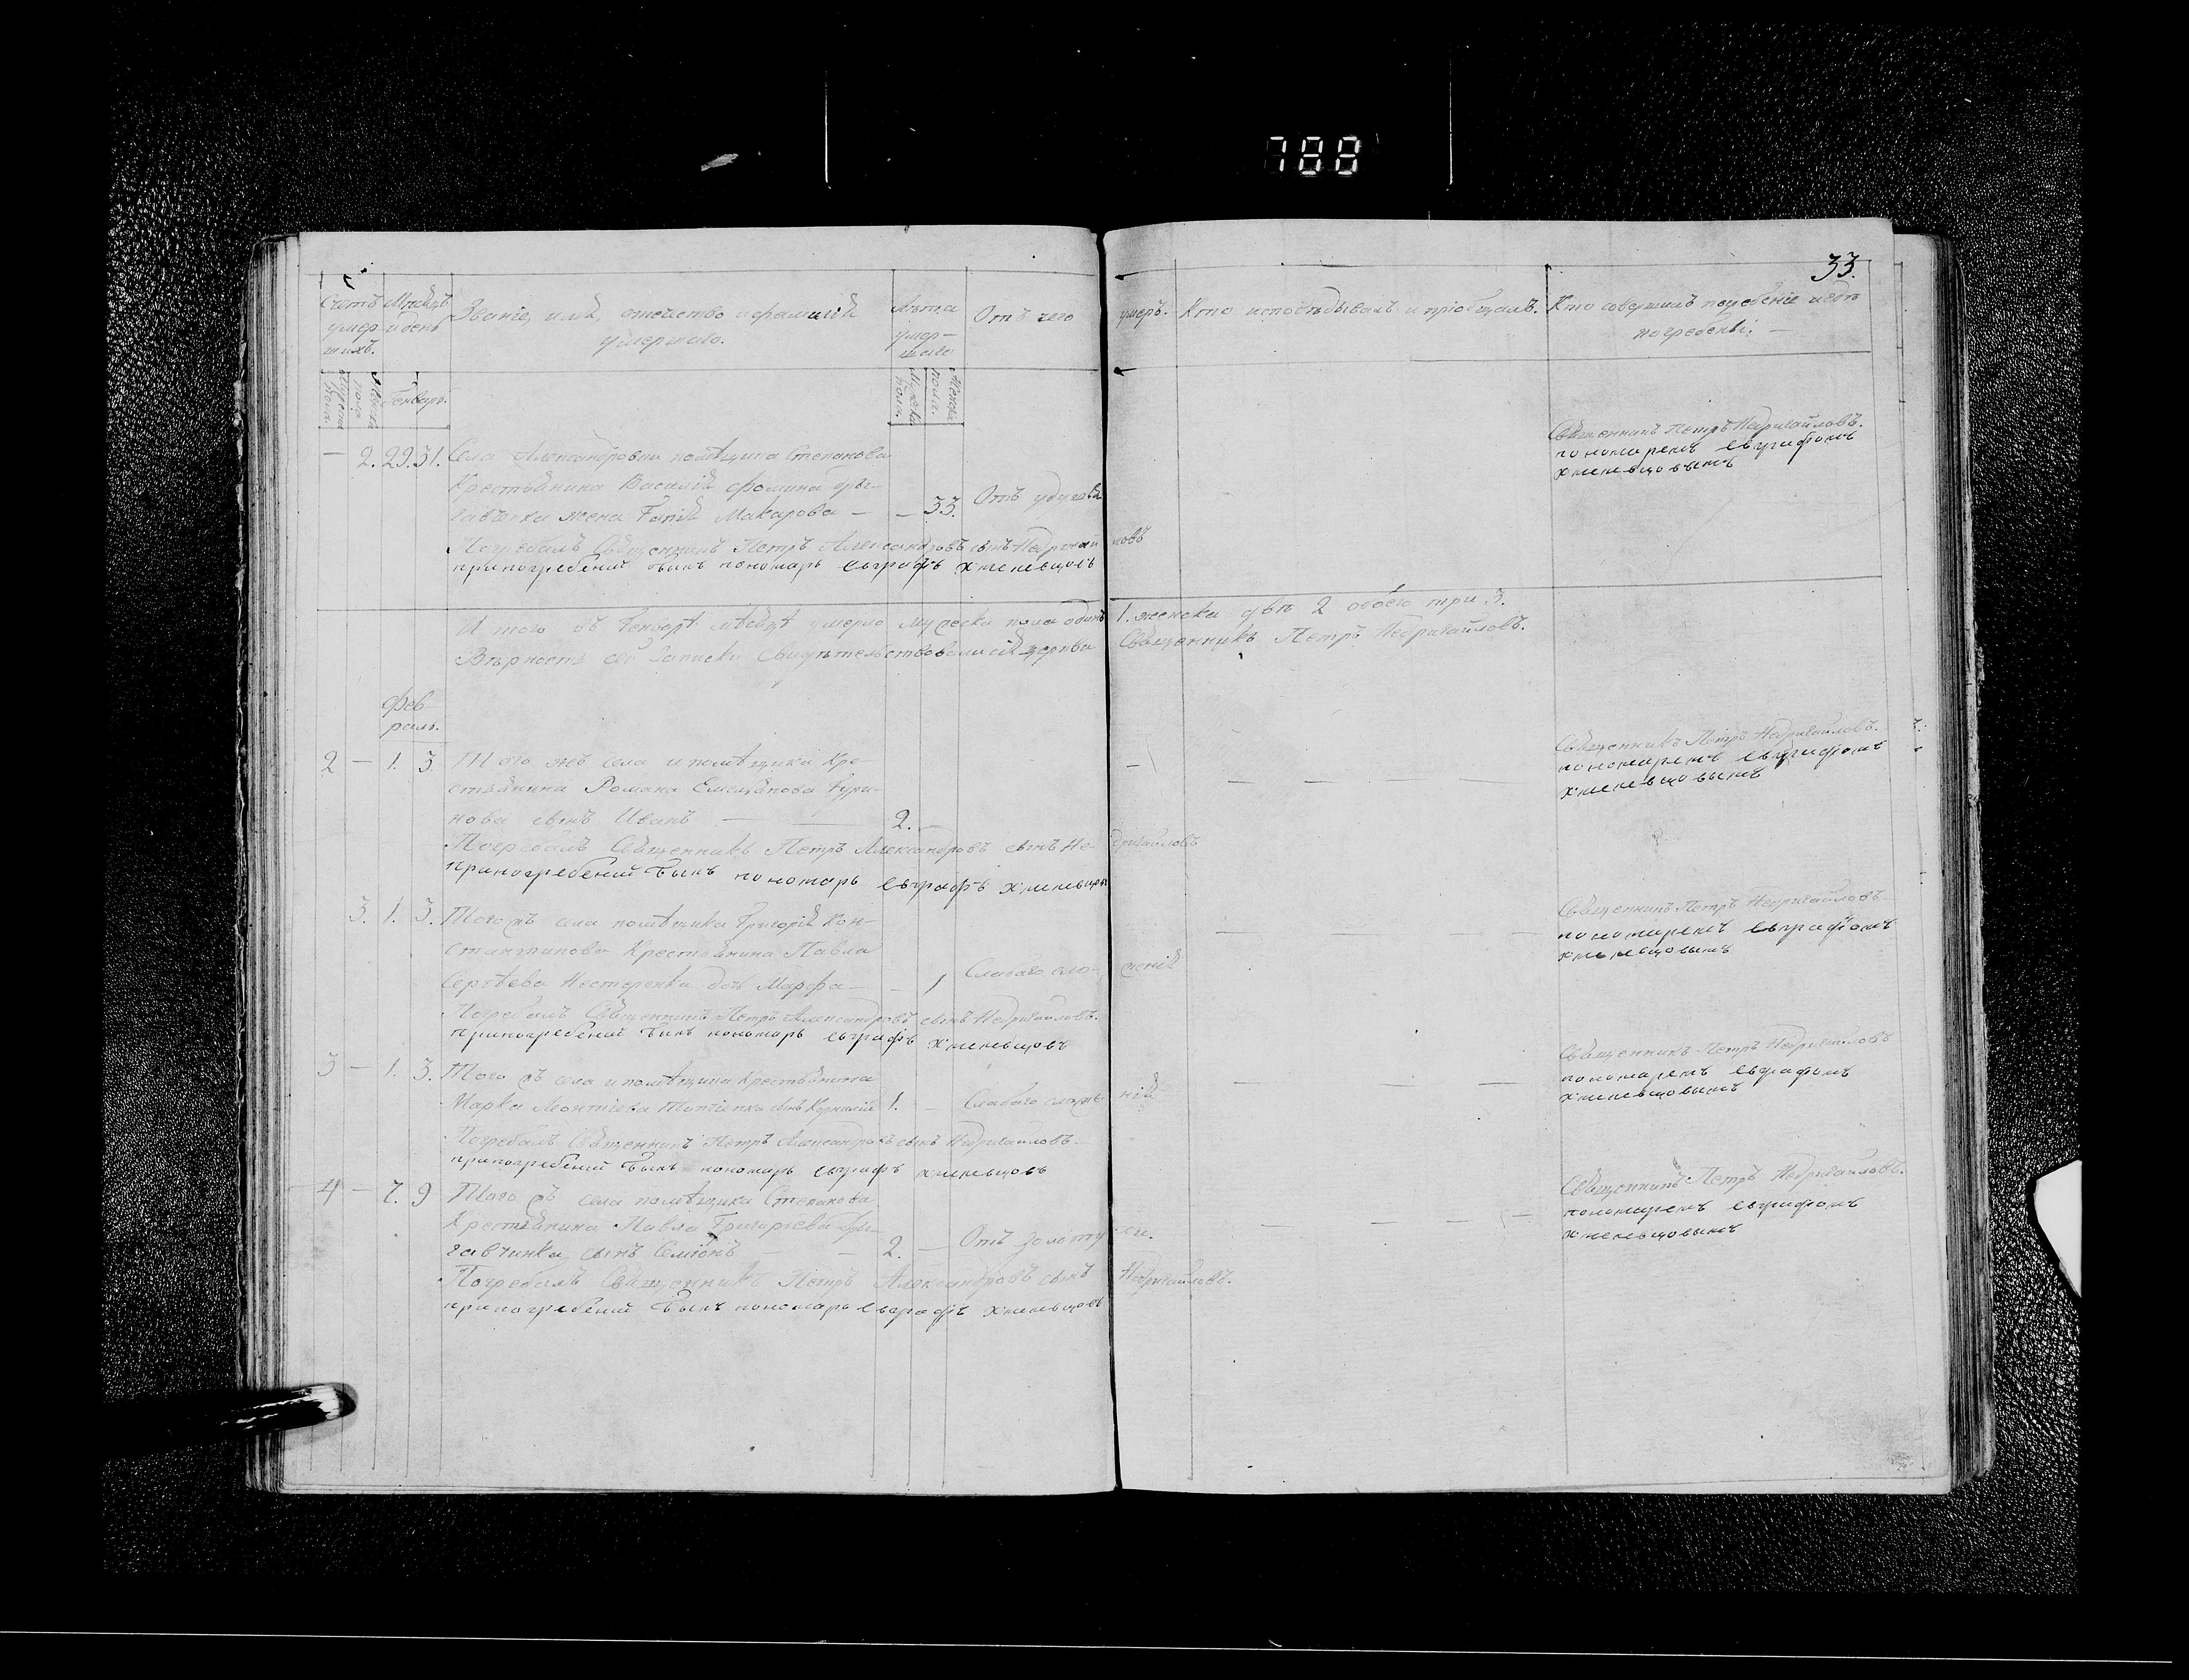 788
33.
Счетъ умер-шихъ.
Мѣсяцъ и день
Званіе, имя, отечество и фамилія умершаго.
Лѣта умер-шаго
Отъ чего умеръ.
Кто исповѣдывалъ и пріобщалъ.
Кто совершилъ погребеніе и гдѣ погребены. —
Мужеска пола
Женска пола
Генварь.
Мужеска пола.
Женска пола.
— 2. 29. 31. Села Александровки помѣщика Степанова
Крестьянина Василія Фомина
жена Макарова — — 33. Отъ
Погребалъ Священникъ Петръ Александровъ сынъ Недригайловъ
припогребений былъ пономарь Евграфъ Хмелевцовъ
Священникъ Петръ Недригайловъ.
пономаремъ Евграфомъ
Хмелевцовымъ
И того въ Генварѣ мѣсяцѣ умерло мужеска пола одинъ 1. женска двѣ 2 обоего три 3.
Вѣрность сей Записки Свидѣтельствовали церкви Священникъ Петръ Недригайловъ.
Фев
раль.
2 — 1. 3 Того жъ села и помѣщика Кре-
стьянина Романа
нова сынъ Иванъ — 2. —
Погребалъ Священникъ Петръ Александровъ сынъ Недригайловъ
припогребений былъ пономарь Евграфъ Хмелевцовъ
Священникъ Петръ Недригайловъ.
пономаремъ Евграфомъ
Хмелевцовымъ
3. 1. 3. Того жъ села помѣщика Григорія Кон-
стантинова Крестьянина Павла
Сергѣева Нестеренка дочь Марфа — — 1 Слабаго сло-женія
Погребалъ Священникъ Петръ Александровъ сынъ Недригайловъ.
припогребений былъ пономарь Евграфъ Хмелевцовъ
Священникъ Петръ Недригайловъ
пономаремъ Евграфомъ
Хмелевцовымъ
3 — 1. 3. Того жъ села и помѣщика Крестьянина
Марка Леонтіева сынъ Корнилій 1. — Слабаго сложенія
Погребалъ Священникъ Петръ Александровъ сынъ Недригайловъ
припогребений былъ пономарь Евграфъ Хмелевцовъ
Священникъ Петръ Недригайловъ
пономаремъ Евграфомъ
Хмелевцовымъ
4 — 7. 9 Того жъ села помѣщика Степанова
Крестьянина Павла Григорьева
сынъ Семіонъ — — 2. — Отъ золотухи.
Погребалъ Священникъ Петръ Александровъ сынъ Недригайловъ.
припогребений былъ пономарь Евграфъ Хмелевцовъ
Священникъ Петръ Недригайловъ.
пономаремъ Евграфомъ
Хмелевцовымъ